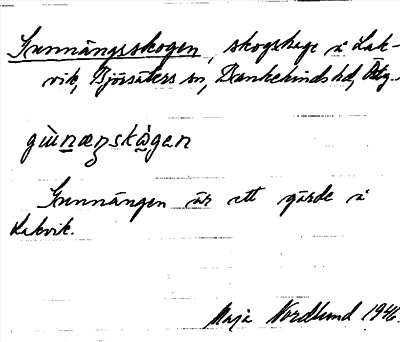 Gunnängsskogen, skogshage i Lak-
vik, Björsäters sn, Bankekinds hd, Östg.
gùnæŋskògen
Gunnängen är ett gärde i
Lakvik.
Maja Nordlund 1946.